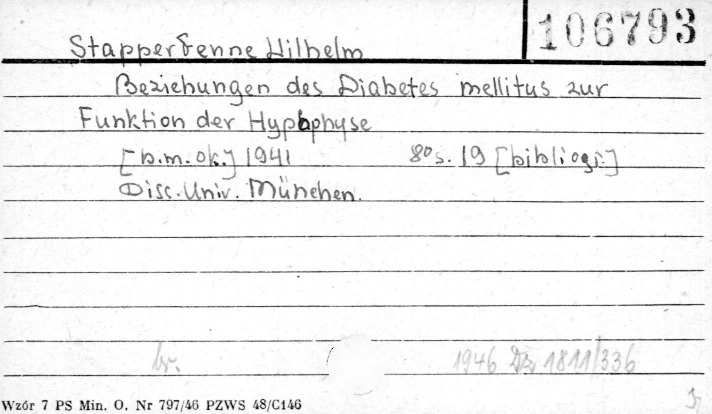 106793
Stapperfenne Wilhelm
Beziehungen des Diabetes mellitus zur
Funktion der Hypophyse
[b.m.ok.] 1941 8° s. 19 [bibliogr.]
Diss. Univ. München.
br. 1946 Dz. 1811/336
Wzór 7 PS Min. O. Nr 797/46 PZWS 48/C146